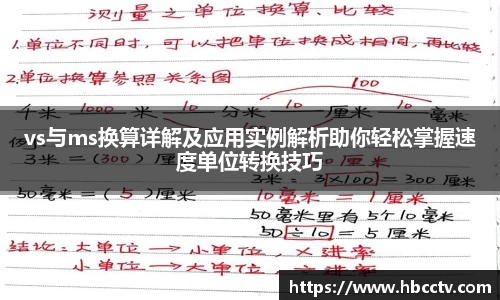 测量之单位换算、比较
1.单位不同时,可以把单位换成相同,再比较
2.单位换算参照关系图
100
千米 1000 米 10 分米 厘米 毫米
vs与ms换算详解及应用实例解析助你轻松掌握速
度单位转换技巧
3米=(300)厘米 3米:3×100=300厘米
10毫米=1厘米
50毫米=(5)厘米
50毫米里有5个10毫米
50÷10=5厘米
结论:大单位→小单位,×进率
小单位→大单位,
https://www.hbcctv.com